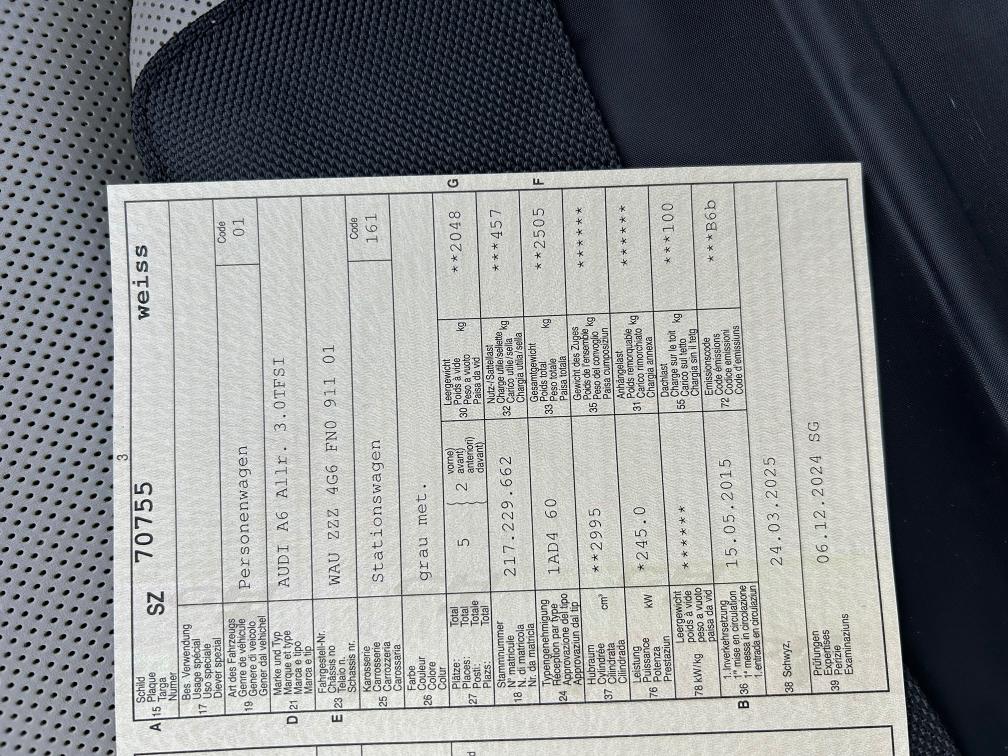 3
A 15 Schild Plaque Targa Numer SZ 70755 weiss
17 Bes. Verwendung Usage spécial Uso speciale Diever spezial
19 Art des Fahrzeugs Genre de véhicule Genere di veicolo Gener da vehichel Personenwagen Code 01
D 21 Marke und Typ Marque et type Marca e tipo Marca e tip AUDI A6 Allr. 3.0TFSI
E 23 Fahrgestell-Nr. Châssis no Telaio n. Schassis nr. WAU ZZZ 4G6 FN0 911 01
25 Karosserie Carrosserie Carrozzeria Carossaria Stationswagen Code 161
26 Farbe Couleur Colore Colur grau met.
27 Plätze: Places: Posti: Plazs: Total Total Totale Total 5 } 2 vorne) avant) anteriori) davant) 30 Leergewicht Poids à vide Peso a vuoto Paisa da vid kg **2048 G
18 Stammnummer N° matricule N. di matricola Nr. da matricla 217.229.662 32 Nutz-/Sattellast Charge utile/sellette Carico utile/sella Chargia utila/sella kg ***457
24 Typengenehmigung Réception par type Approvazione del tipo Approvaziun dal tip 1AD4 60 33 Gesamtgewicht Poids total Peso totale Paisa totala kg **2505 F
37 Hubraum Cylindrée Cilindrata Cilindrada cm³ **2995 35 Gewicht des Zuges Poids de l'ensemble Peso del convoglio Paisa cumposiziun kg ******
76 Leistung Puissance Potenza Prestaziun kW *245.0 31 Anhängelast Poids remorquable Carico rimorchiato Chargia annexa kg ******
78 kW/kg Leergewicht poids à vide peso a vuoto paisa da vid ***** 55 Dachlast Charge sur le toit Carico sul tetto Chargia sin il tetg kg ***100
B 36 1.Inverkehrsetzung 1re mise en circulation 1a messa in circolazione 1.entrada en circulaziun 15.05.2015 72 Emissionscode Code émissions Codice emissioni Code d'emissiuns ***B6b
38 Schwyz, 24.03.2025
39 Prüfungen Expertises Perizie Examinaziuns 06.12.2024 SG